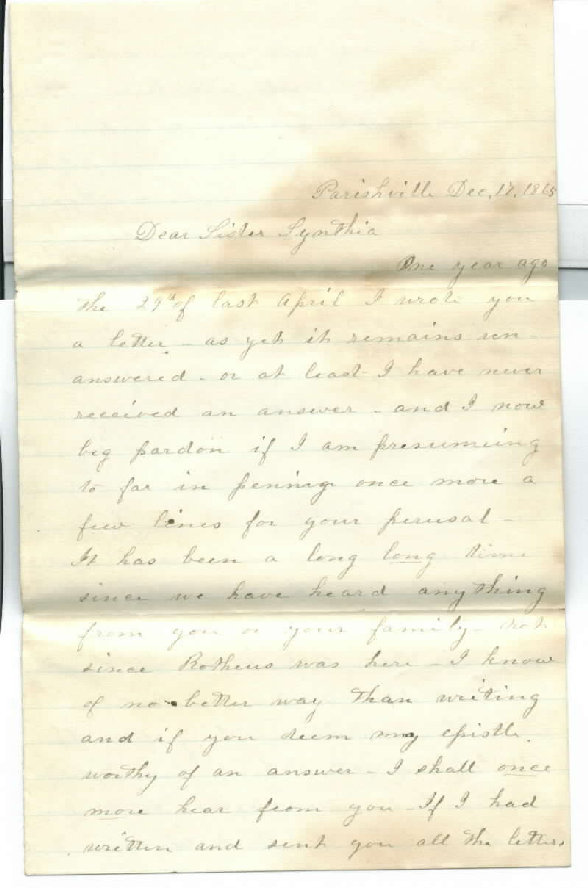 Parishville Dec, 17, 1865
Dear Sister Synthia
One year ago
the 29th of last April I wrote you
a letter - as yet it remains un-
answered - or at least I have never
received an answer - and I now
beg pardon if I am presumeing
to far in pening once more a
few lines for your perusal -
It has been a long long time
since we have heard anything
from you or your family - not
since Rotheus was here - I know
of no better way than writing
and if you deem my epistle
worthy of an answer - I shall once
more hear from you - If I had
written and sent you all the letters